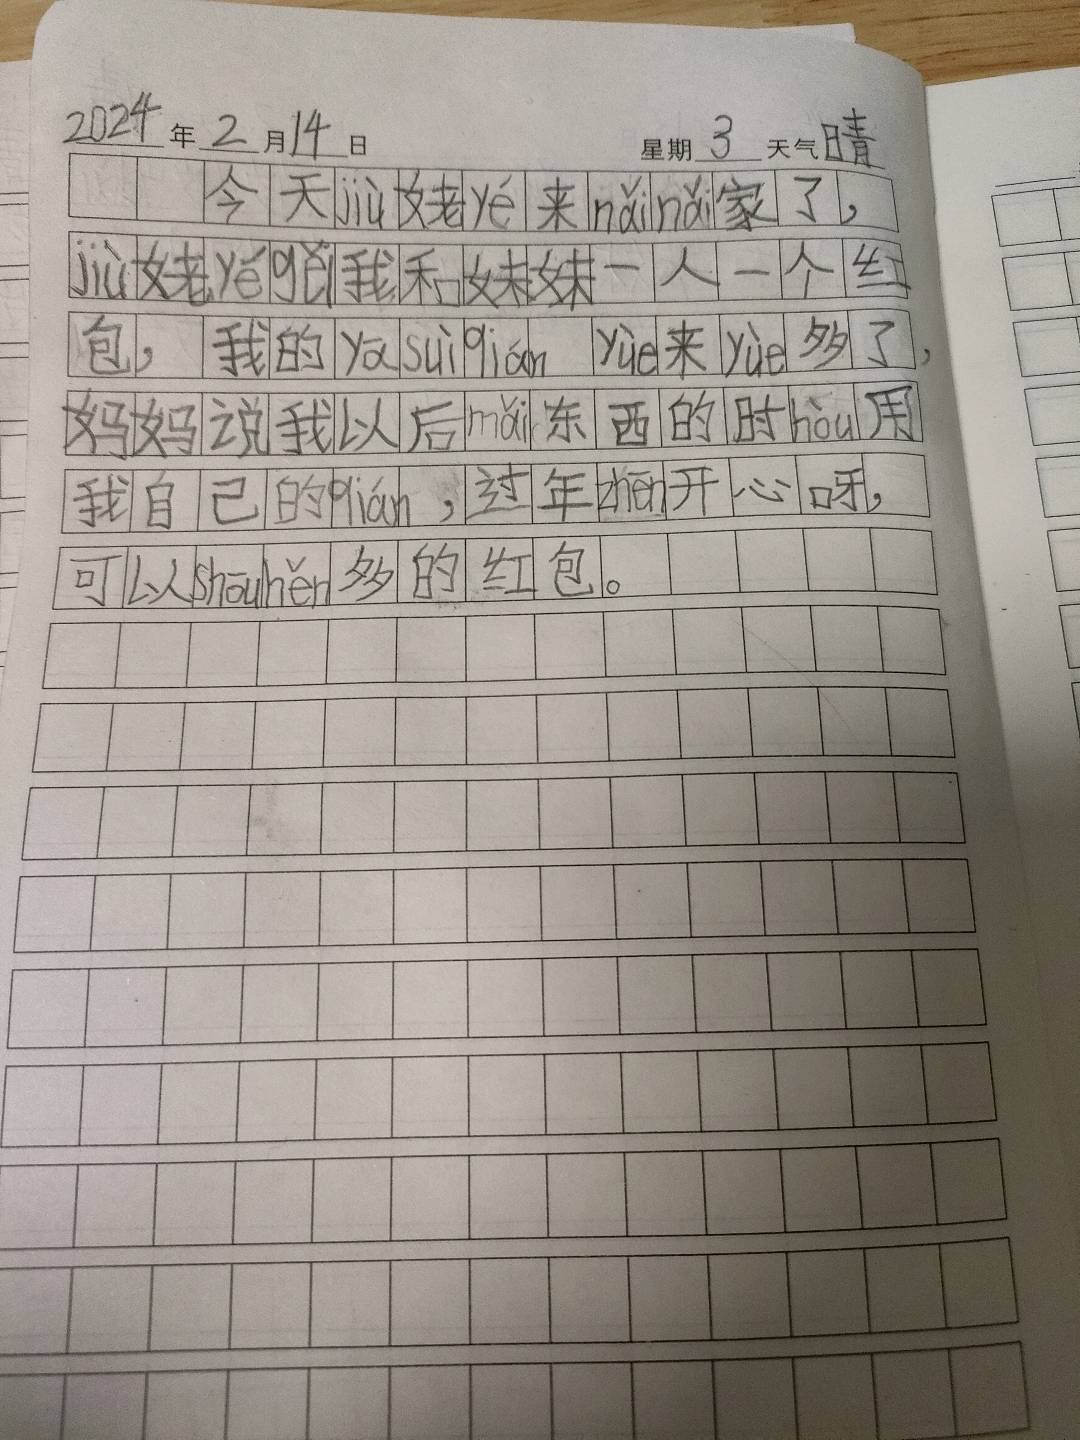 2024年2月14日 星期3 天气晴
今天jiù姥yé来nǎinǎi家了，
jiù姥yé gěi我和妹妹一人一个红
包，我的yā suì qián yùe来yùe多了，
妈妈说我以后mǎi东西的时hòu用
我自己的qián，过年zhēn开心呀，
可以shōu hěn多的红包。